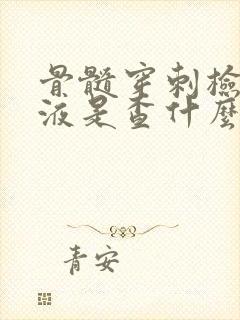 骨髓穿刺檢
液是查什麼
青安